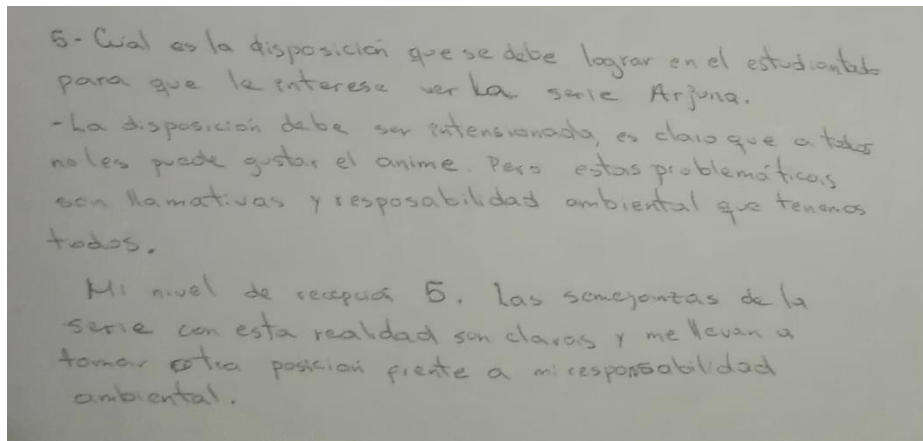 5- Cuál es la disposición que se debe lograr en el estudiantado
para que le interese ver La serie Arjuna.
-La disposición debe ser intensionada, es claro que a todos
no les puede gustar el anime. Pero estas problemáticas
son llamativas y resposabilidad ambiental que tenemos
todos.
Mi nivel de recepción 5. Las semejantas de la
serie con esta realidad son claras y me llevan a
tomar otra posición frente a mi responsabilidad
ambiental.